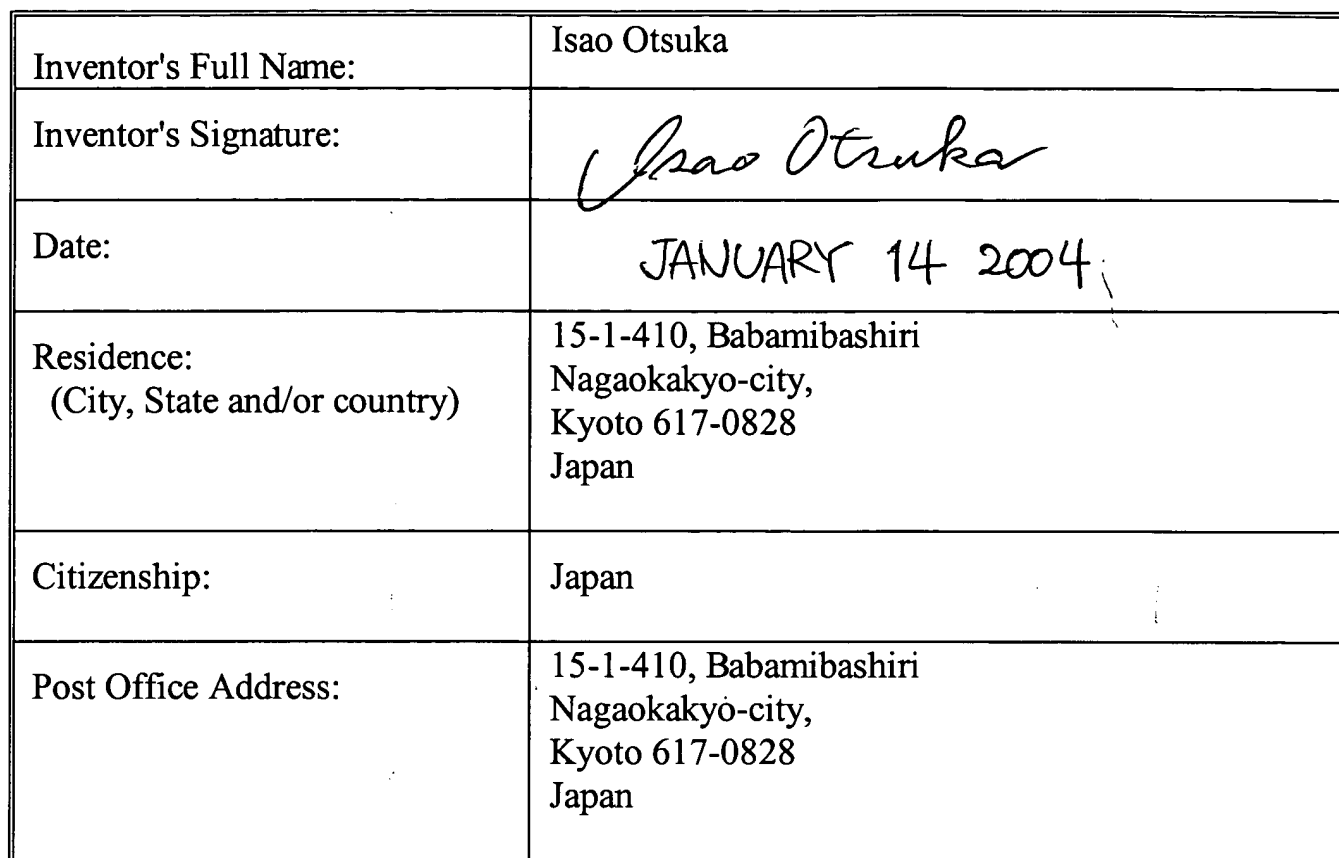 Inventor's Full Name: Isao Otsuka
Inventor's Signature: Isao Otsuka
Date: JANUARY 14 2004
Residence:
(City, State and/or country)
15-1-410, Babamibashiri
Nagaokakyo-city,
Kyoto 617-0828
Japan
Citizenship: Japan
Post Office Address:
15-1-410, Babamibashiri
Nagaokakyo-city,
Kyoto 617-0828
Japan